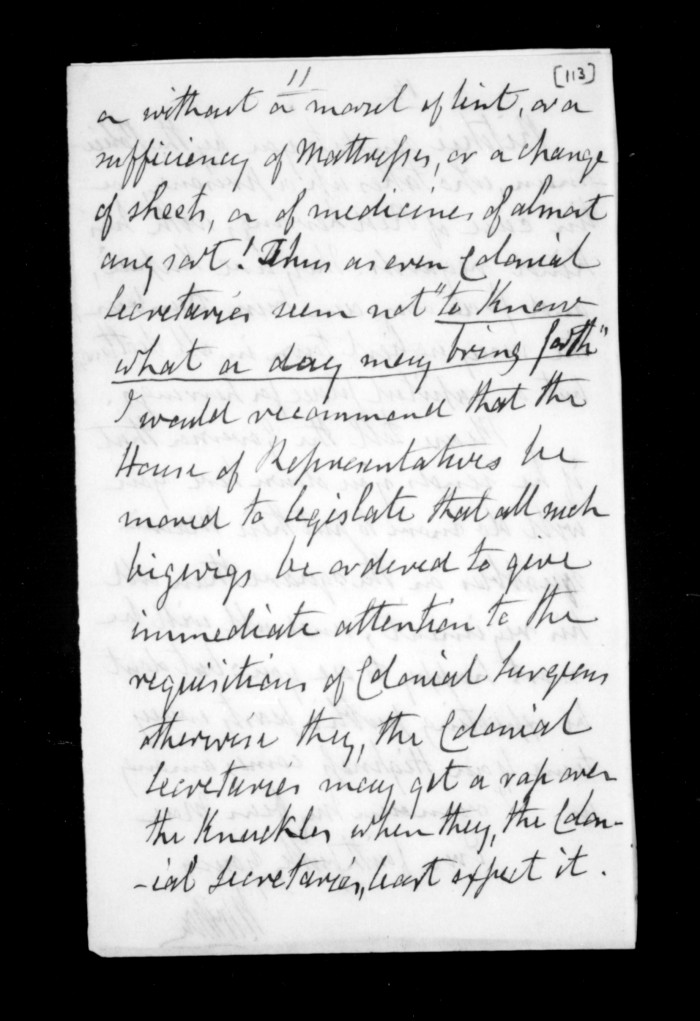 11
[113]
or without a morsel of lint, or a
sufficiency of Mattresses, or a change
of sheets, or of medicines of almost
any sort! Thus as even Colonial
Secretaries seem not "to Know
what a day may bring forth"
I would recommend that the
House of Representatives be
moved to legislate that all such
bigwigs be ordered to give
immediate attention to the
requisitions of Colonial Surgeons
otherwise they, the Colonial
Secretaries may get a rap over
the Knuckles when they, the Colon-
-ial Secretaries, least expect it.